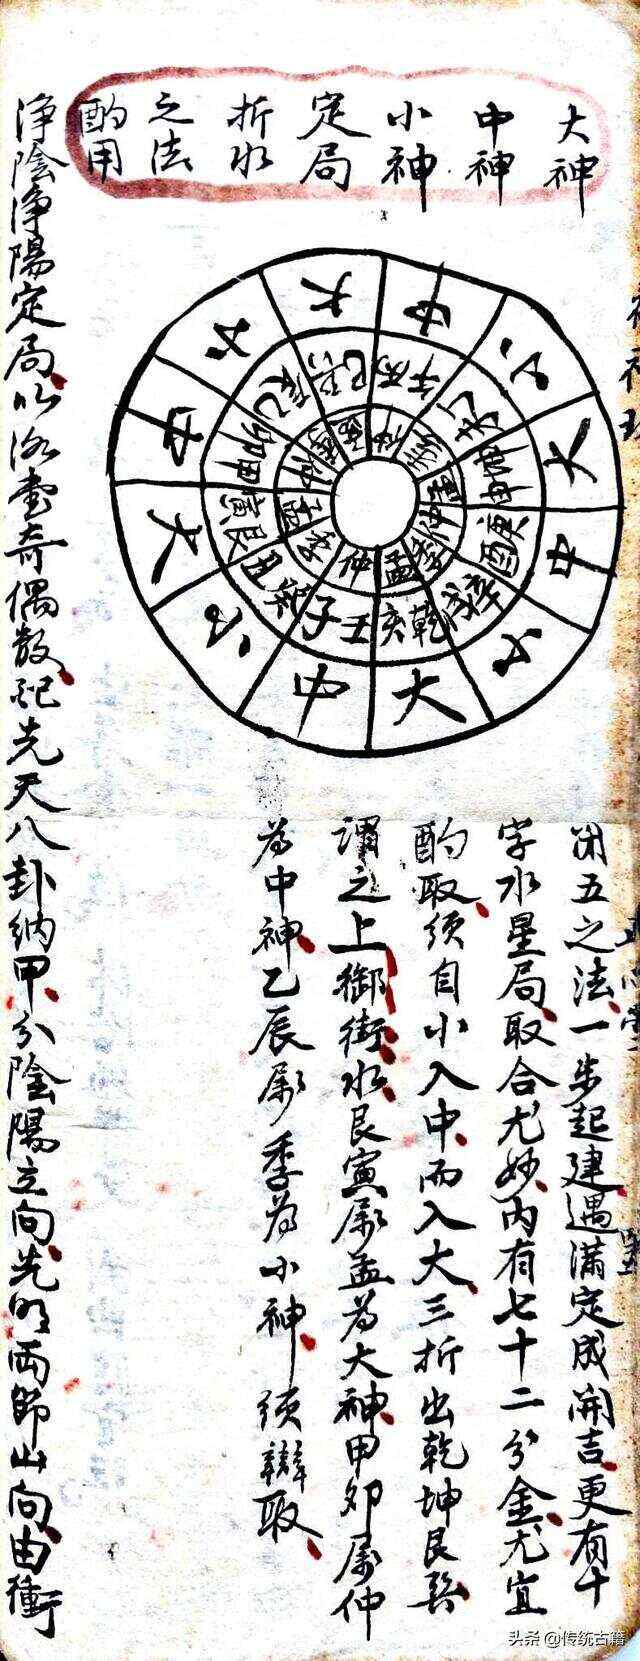 大神
中神
小神
定局
折水
之法
酌用
大
中
小
大
中
小
大
中
小
大
中
小
乾亥
壬子
艮寅
甲卯
丙午
坤申
庚酉
孟
仲
五之法一步起建遇滿定成開吉更有十
字水星局取合尤妙內有七十二分金尤宜
酌取須自小入中而入大三折出乾坤艮巽
謂之上御街水艮寅屬孟為大神甲卯屬仲
為中神乙辰屬季為小神須辯取
淨陰淨陽定局以洛書奇偶數配先天八卦納甲分陰陽立向先明兩節山向由衝
头条 @传统古籍